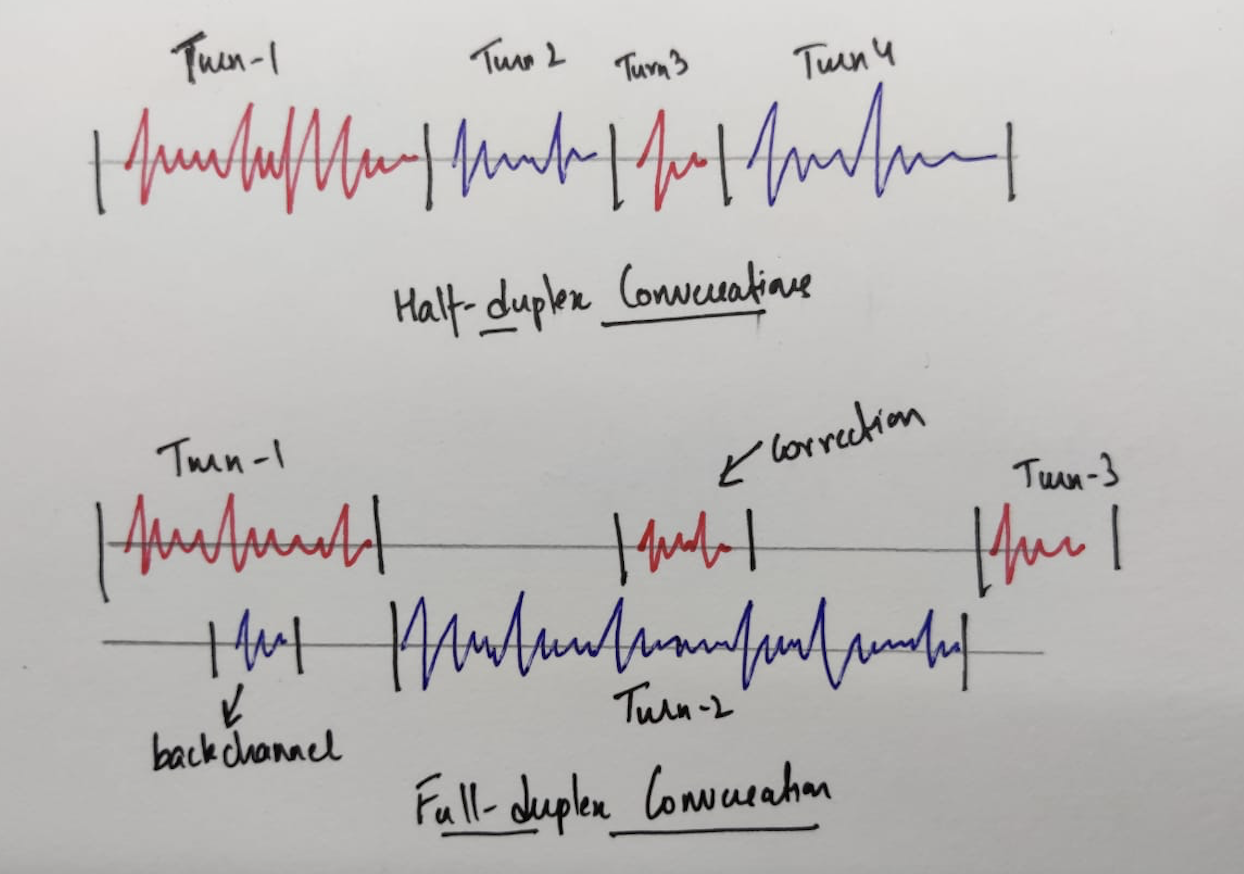 Turn-1 Turn 2 Turn3 Turn4
Half-duplex Conversations
correction
Turn-1
Turn-3
Turn-2
backchannel
Full-duplex Conversation